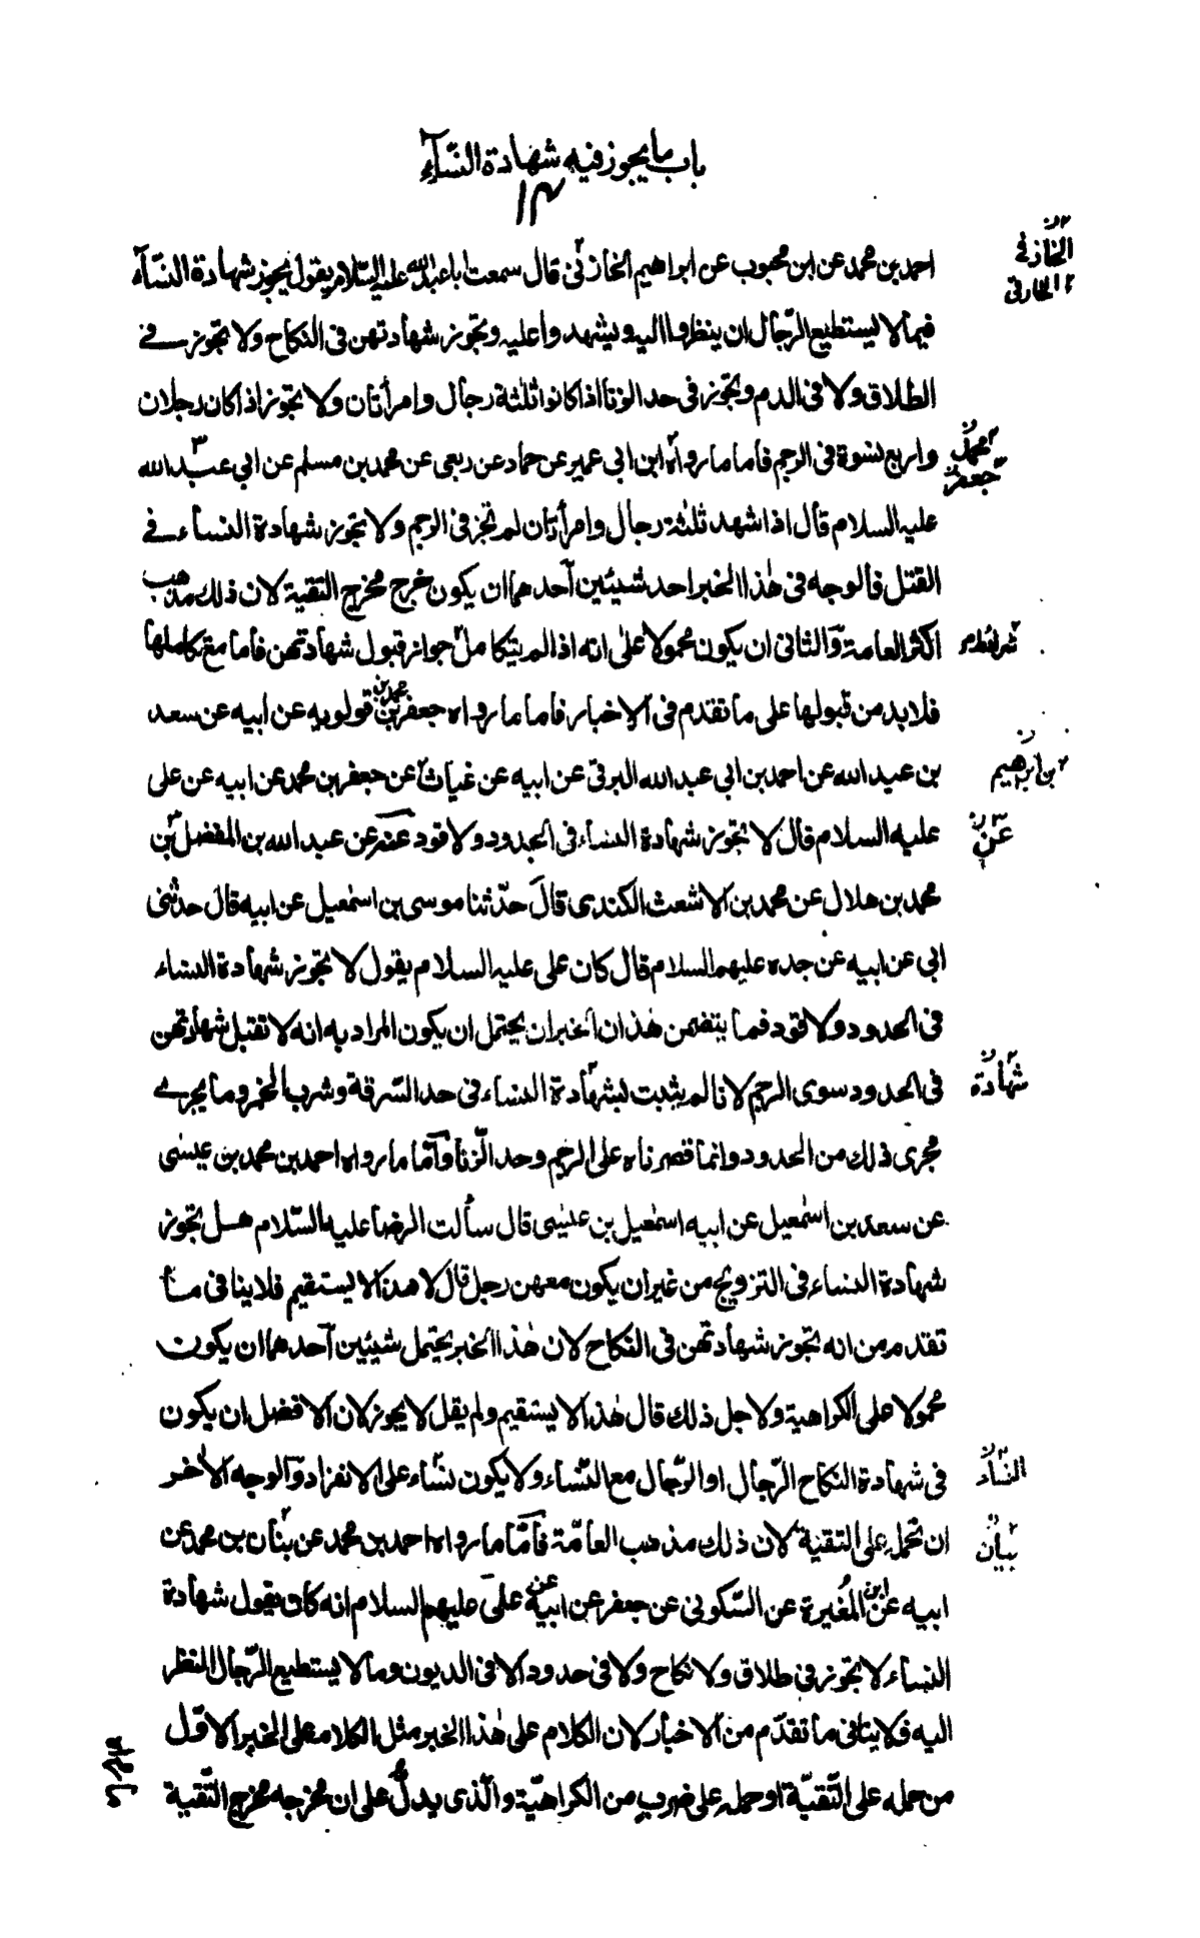 باب ما يجوز فيه شهادة النسآء
١٣
احمد بن محمد عن ابن محبوب عن ابراهيم الخازنى قال سمعت ابا عبدالله عليه السّلام يقول يجوز شهادة النسّآء
الخازفى
الحارقى
فيما لا يستطيع الرّجال ان ينظروا اليه ويشهدوا عليه وتجوز شهادتهن فى النكاح ولا تجوز فى
الطلاق ولا فى الدم وتجوز فى حد الزنا اذا كانوا ثلثة رجال وامرأتان ولا تجوز اذا كان رجلان
واربع نسوة فى الرجم فأما ما رواه ابن ابى عمير عن حماد عن ربعى عن محمد بن مسلم عن ابي عبد الله
محمد
جعفر
عليه السلام قال اذا شهد ثلثة رجال وامرأتان لم تجز فى الرجم ولا تجوز شهادة النساء فى
القتل فالوجه فى هذا الخبر احد شيئين آحدهما ان يكون خرج مخرج التقية لان ذلك مذهب
اكثر العامة وَالثانى ان يكون محمولا على انه اذا لم يتكامل جواز قبول شهادتهن فأما مع تكاملها
شرائط
فلابد من قبولها على ما تقدم فى الاخبار فاما ما رواه جعفر بن محمد بن قولويه عن ابيه عن سعد
بن عبد الله عن احمد بن ابي عبد الله البرقى عن ابيه عن غياث عن جعفر بن محمد عن ابيه عن على
بن ابرهيم
عليه السلام قال لا تجوز شهادة النساء فى الحدود ولا قود عنه عن عبد الله بن المفضل بن
عن
محمد بن هلال عن محمد بن الاشعث الكندى قال حدّثنا موسى بن اسمعيل عن ابيه قال حدثنى
ابى عن ابيه عن جده عليهم السلام قال كان على عليه السلام يقول لا تجوز شهادة النساء
فى الحدود ولا قود فما يتضمن هذان الخبران يحتمل ان يكون المراد به انه لا تقتبل شهادتهن
فى الحدود سوى الرجم لانا لم يثبت بشهادة النساء فى حد السّرقة وشرب الخمر وما يجرى
شهادة
مجرى ذلك من الحدود وانما قصرناه على الرجم وحد الزّنا وَأمّا ما رواه احمد بن محمد بن عيسى
عن سعد بن اسمعيل عن ابيه اسمعيل بن عيسى قال سألت الرضا عليه السّلام هل تجوز
شهادة النساء فى التزويج من غير ان يكون معهن رجل قال لا هذا لا يستقيم فلا ينافى ما
تقدم من انه تجوز شهادتهن فى النكاح لان هذا الخبر يحتمل شيئين آحدهما ان يكون
محمولا على الكراهية ولاجل ذلك قال هذا لا يستقيم ولم يقل لا يجوز لان الافضل ان يكون
فى شهادة النكاح الرّجال او الرّجال مع النّساء ولا يكون نسّاء على الانفراد وَالوجه الأخر
النسّاء
ان تحمله على التقية لان ذلك مذهب العامّة فأمّا ما رواه احمد بن محمد عن بنان بن محمد عن
بيان
ابيه عن ابن المُغيرة عن السّكونى عن جعفر عن ابيه عن على عليهم السلام انه كان يقول شهادة
النساء لا تجوز فى طلاق ولا نكاح ولا فى حدود الا فى الديون وما لا يستطيع الرّجال النظر
اليه فلا ينافى ما تقدّم من الاخبار لان الكلام على هذا الخبر مثل الكلام على الخبر الاوّل
من حمله على التّقيّة او حمله على ضرب من الكراهيّة والّذى يدلّ على ان مخرجه مخرج التّقية